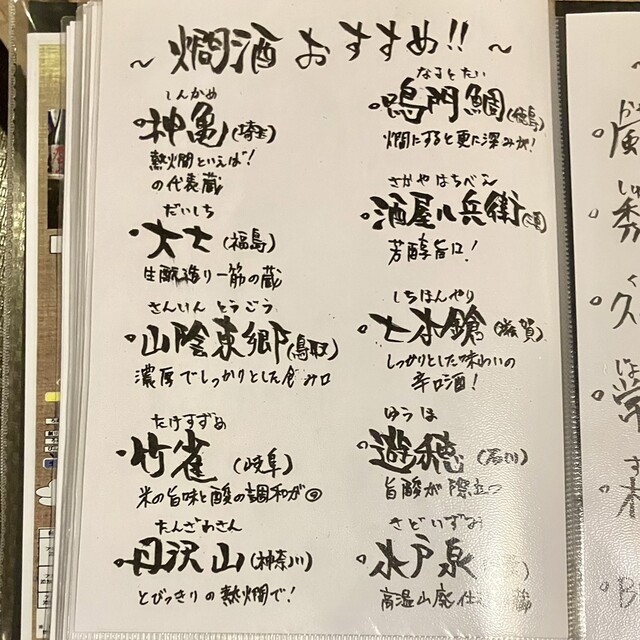 ～燗酒おすすめ!!～
しんかめ
神亀(埼玉)
熱燗といえば!
の代表蔵
だいしち
大七(福島)
生酛造り一筋の蔵
さんいん とうごう
山陰東郷(鳥取)
濃厚でしっかりとした飲み口
たけすずめ
竹雀(岐阜)
米の旨味と酸の調和が◎
たんざわさん
丹沢山(神奈川)
とびっきりの熱燗で!
なるとたい
鳴門鯛(徳島)
燗にすると更に深みが!
さかやはちべえ
酒屋八兵衛
芳醇旨口!
しちほんやり
七本鎗(滋賀)
しっかりとした味わいの
辛口酒!
ゆうほ
遊穂(石川)
旨酸が際立つ
さどいずみ
木戸泉
高温山廃仕 蔵